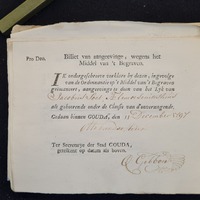 Pro Deo.
Billet van aangeevinge, wegens het
Middel van 't Begraven.
IK ondergeschreeven verklare by dezen, ingevolge
van de Ordonnantie op 't Middel van 't Begraven
geëmaneert, aangegeven te doen van het Lyk van
als gehoorende onder de Classe van d'onvermogende.
Gedaan binnen GOUDA, den 15 December 1797
Ter Secretarye der Stad GOUDA,
getekent op datum als boven.